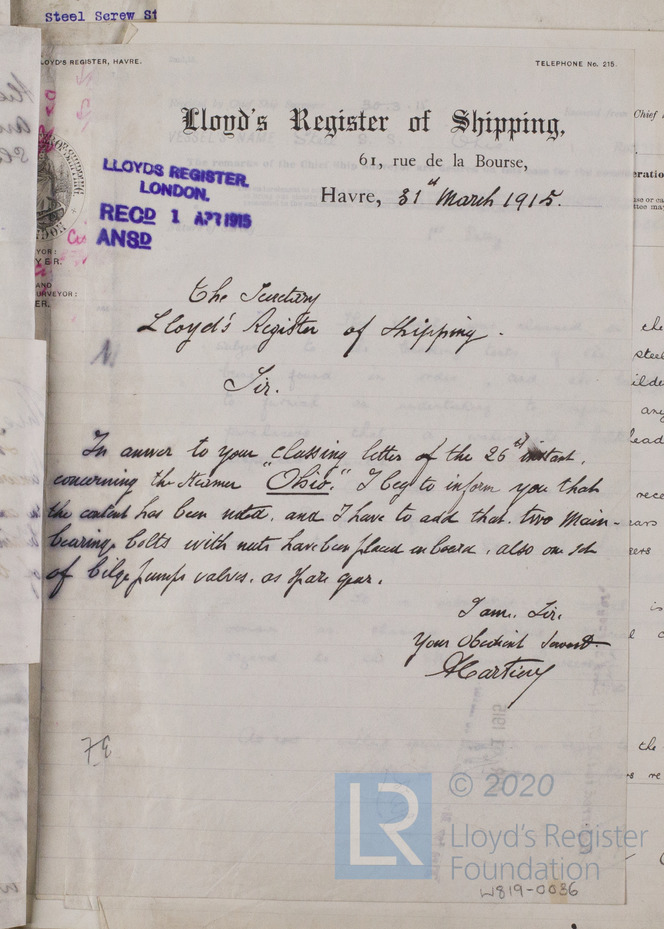 Steel Screw St
LLOYD'S REGISTER, HAVRE.
TELEPHONE No. 215.
Lloyd's Register of Shipping,
61, rue de la Bourse,
Havre, 31st March 1915.
LLOYDS REGISTER.
LONDON.
RECD 1 APR 1915
ANSD
The Secretary
Lloyd's Register of Shipping.
Sir.
In answer to your classing letter of the 26th instant,
concerning the Steamer "Ohio." I beg to inform you that
the content has been noted, and I have to add that two Main-
bearing bolts with nuts have been placed on board, also one set
of bilge pumps valves. as spare gear.
I am. Sir.
Your Obedient Servant
© 2020
LR
Lloyd's Register
Foundation
W819-0036